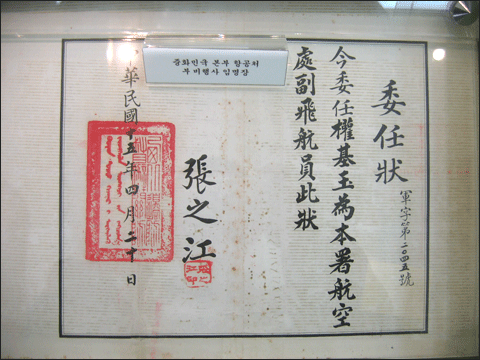 중화민국 본부 항공처
부 비행사 임명장
委任狀
軍字第二〇四五號
今委任權基玉為本署航空
處副飛航員此狀
張之江
中華民國十五年四月二十日